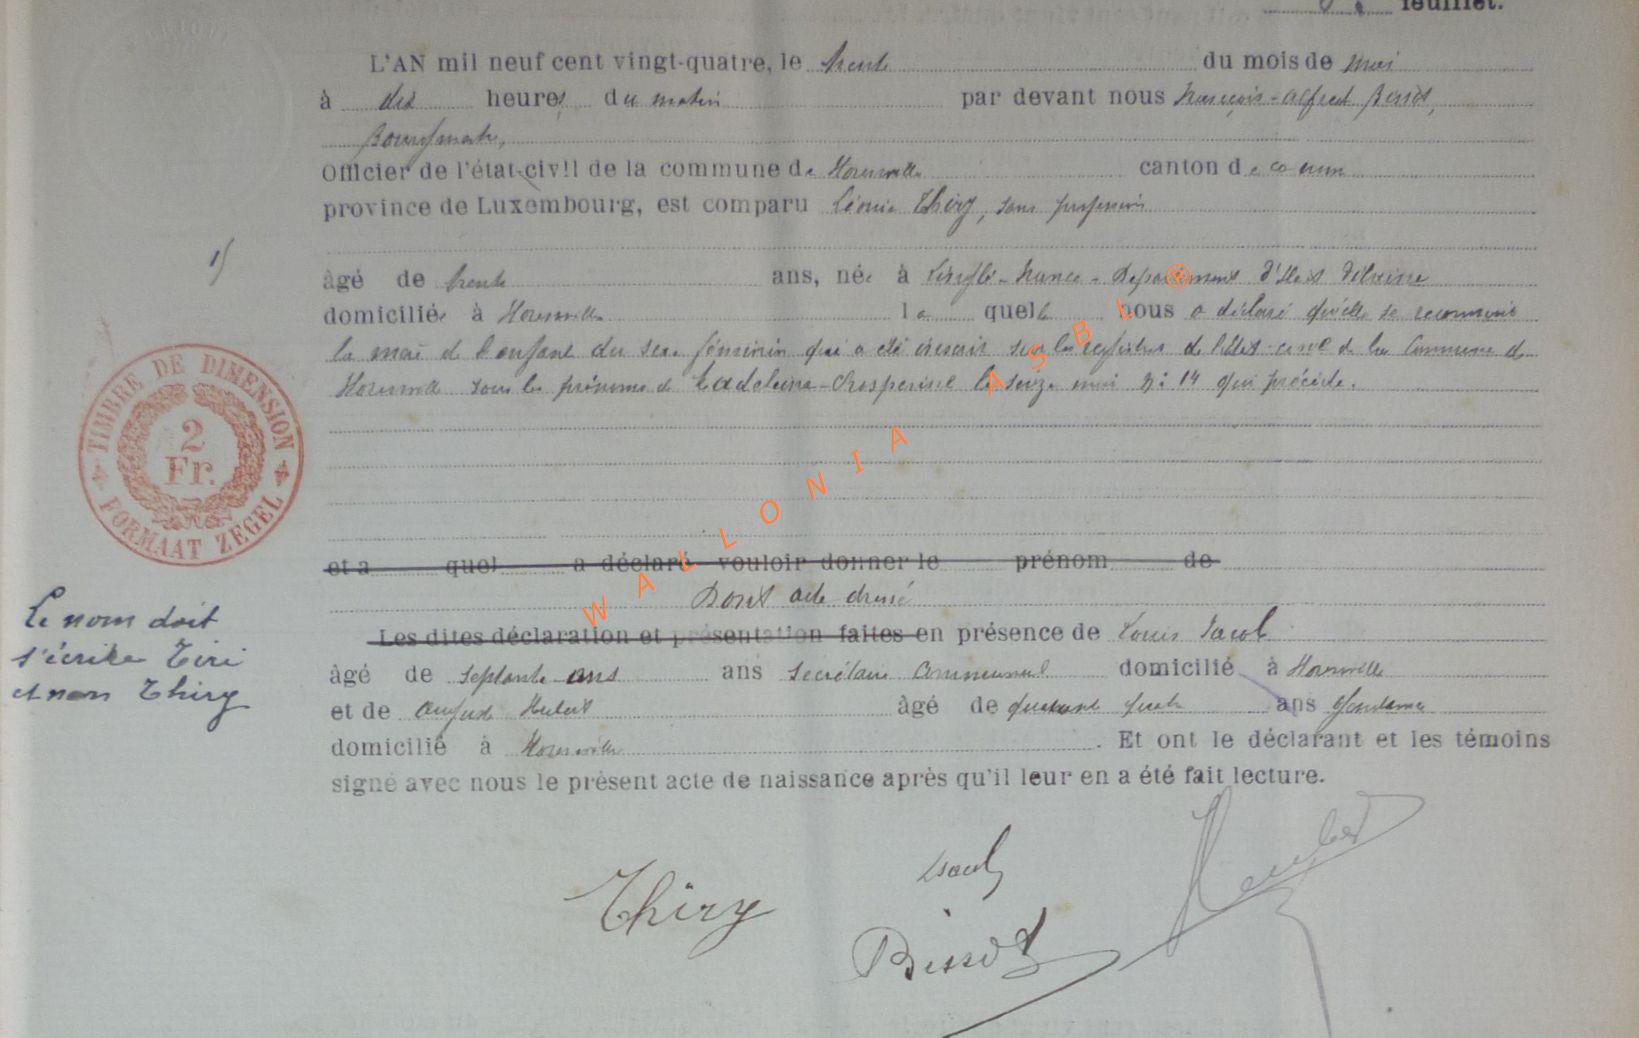 feuillet.
L'AN mil neuf cent vingt-quatre, le trente du mois de mai
à dix heures du matin par devant nous François-Alfred Bissot,
Bourgmestre,
Officier de l'état-civil de la commune de Horrnville canton de
province de Luxembourg, est comparu Léonie Thiry, sans profession
1)
âgé de trente ans, née à France - Département d'Ille et Vilaine
domiciliée à laquelle nous a déclaré qu'elle se reconnait
la mère de l'enfant du sexe féminin qui a été inscrit sur les registres de l'état-civil de la Commune de
sous les prénoms de le seize mai N: 14 qui précède.
TIMBRE DE DIMENSION
2
Fr.
FORMAAT ZEGEL
WALLONIA ASBL ®
et a quel a déclaré vouloir donner le prénom de
Dont acte dressé
Le nom doit
s'écrire Tiri
et non Thiry
Les dites déclaration et présentation faites en présence de Louis Jacob
âgé de septante ans ans secrétaire communal domicilié à
et de Auguste Hubert âgé de quarante quatre ans Gendarme
domicilié à . Et ont le déclarant et les témoins
signé avec nous le présent acte de naissance après qu'il leur en a été fait lecture.
Thiry
Jacob
Bissot
Hubert